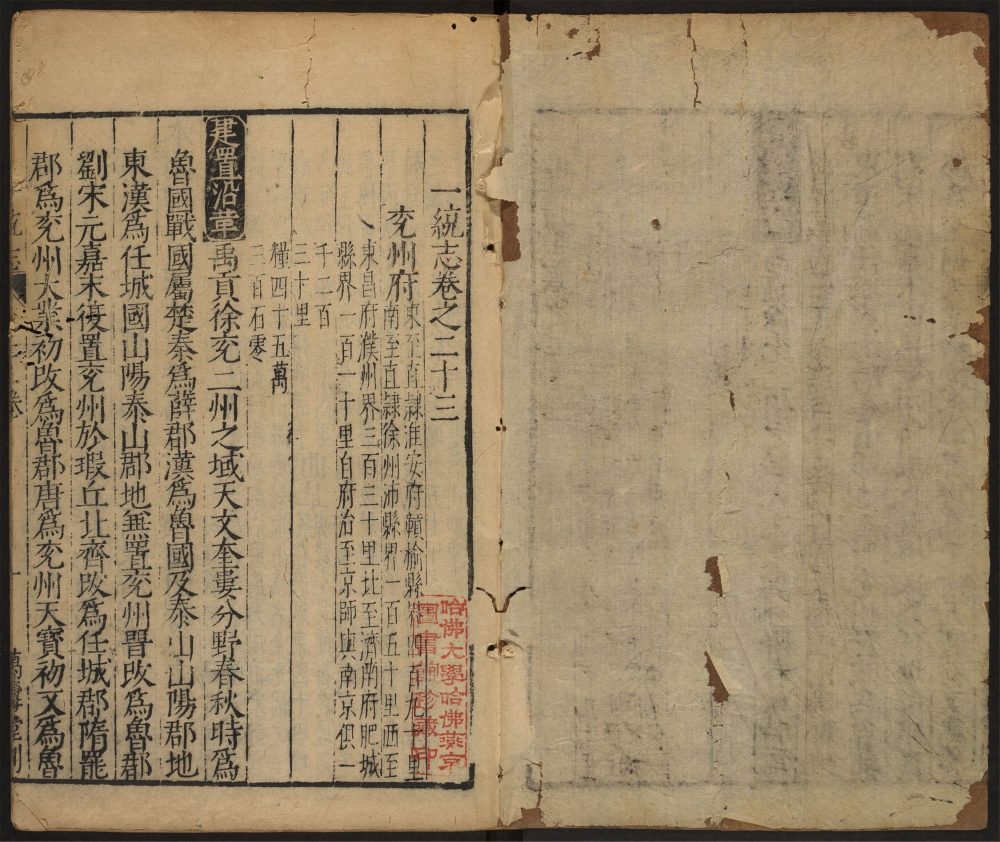 一統志卷之二十三
兖州府
東至直隸淮安府贛榆縣界四百九十里
南至直隸徐州沛縣界一百五十里西至
東昌府濮州界三百三十里北至濟南府肥城
縣界一百一十里自府治至京師與南京俱一
千二百
三十里
糧四十五萬
三百石零
建置沿革
禹貢徐兖二州之域天文奎婁分野春秋時爲
魯國戰國屬楚秦爲薛郡漢爲魯國及泰山山陽郡地
東漢爲任城國山陽泰山郡地無置兖州晋改爲魯郡
劉宋元嘉末復置兖州於瑕丘北齊改爲任城郡隋罷
郡爲兖州大業初改爲魯郡唐爲兖州天寶初又爲魯
一
萬壽堂刊
哈佛大學哈佛燕京
圖書館珍藏印